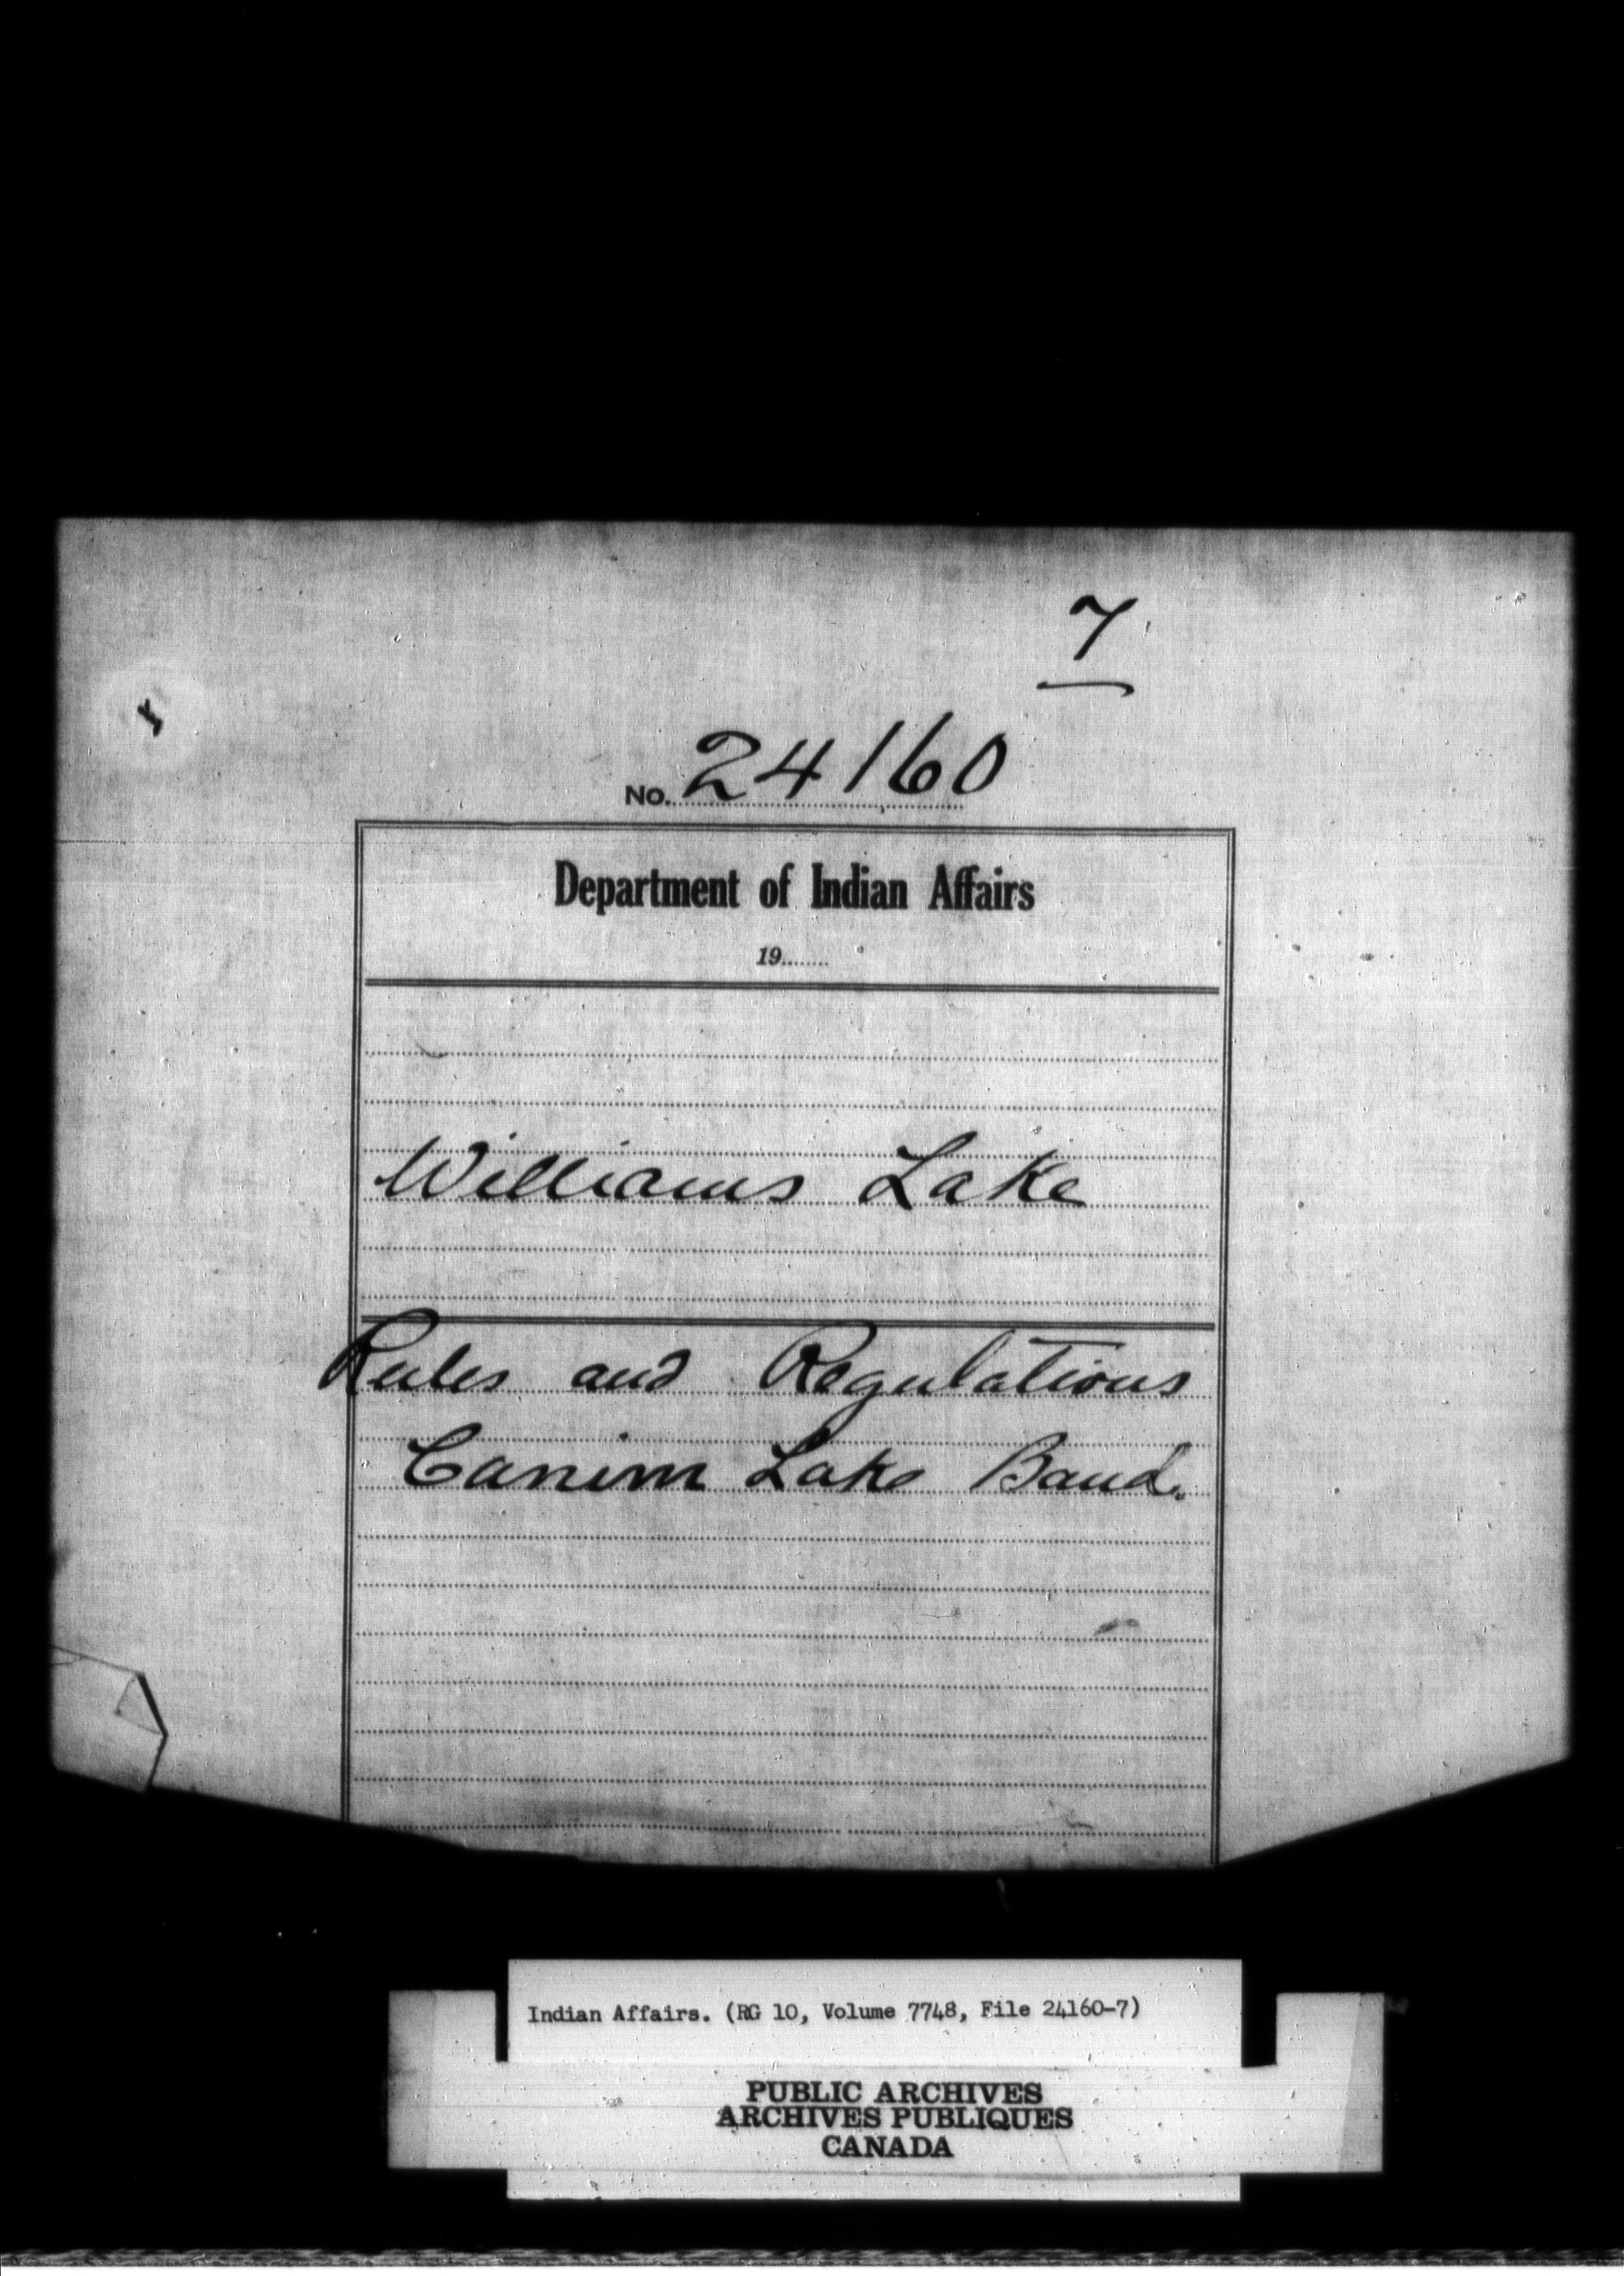 7
No. 24160
Department of Indian Affairs
19........
Williams Lake
Rules and Regulations
Canim Lake Band.
Indian Affairs. (RG 10, Volume 7748, File 24160-7)
PUBLIC ARCHIVES
ARCHIVES PUBLIQUES
CANADA